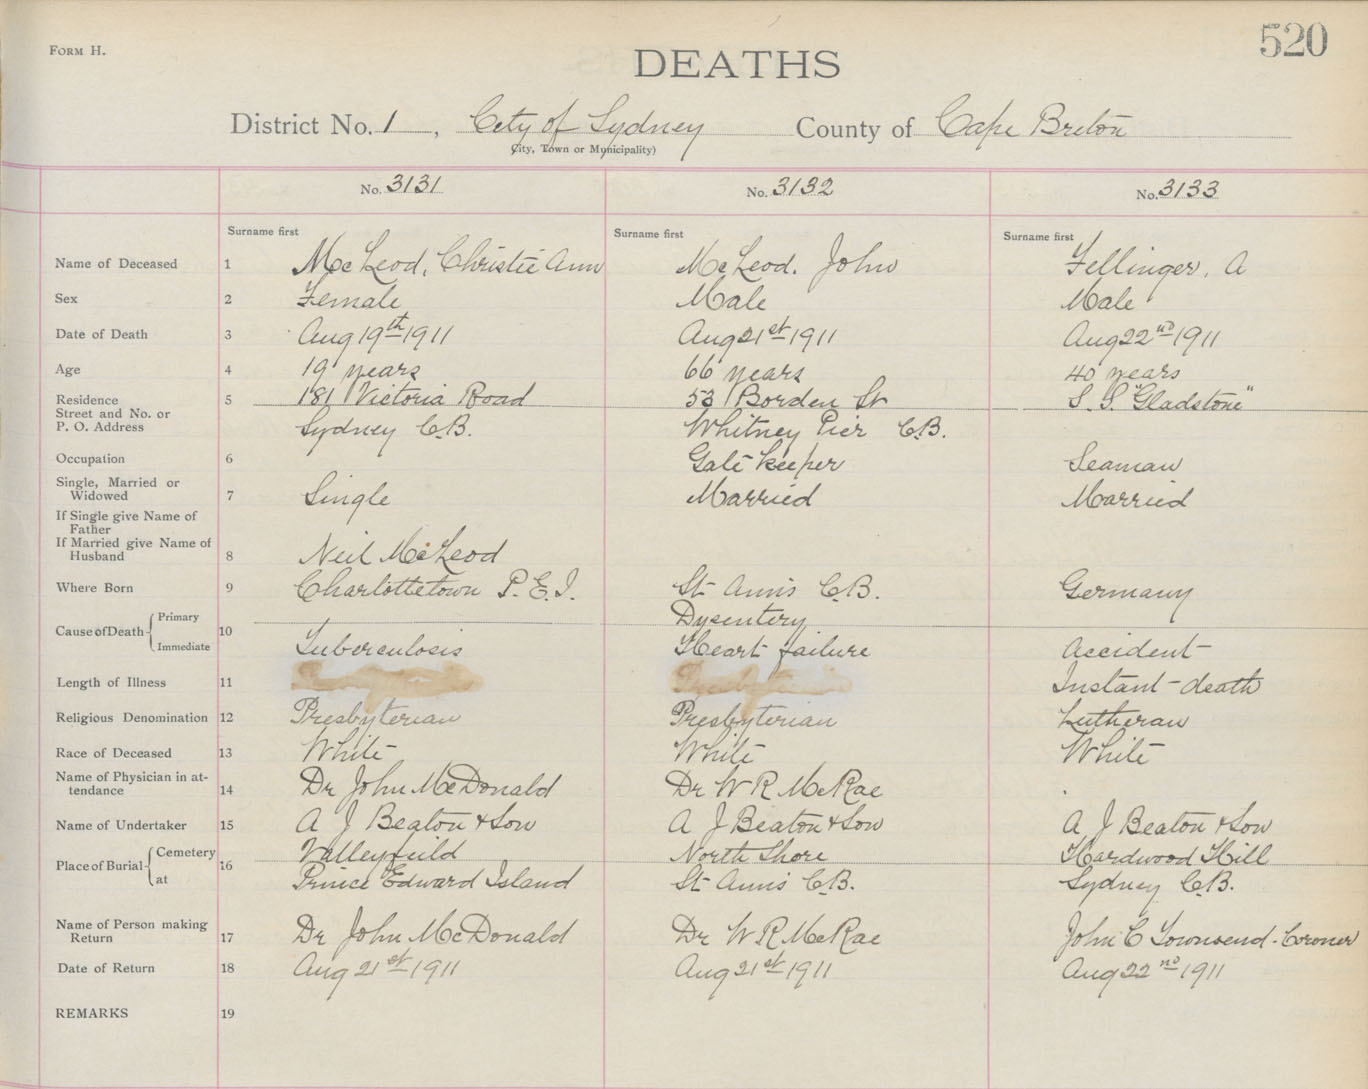 520
FORM H.
DEATHS
District No. 1, City of Sydney County of Cape Breton
City, Town or Municipality)
No. 3131 No. 3132 No. 3133
Surname first Surname first Surname first
Name of Deceased 1 McLeod, Christie Ann McLeod. John Fellinger, A
Sex 2 Female Male Male
Date of Death 3 Aug 19th 1911 Aug 21st 1911 Aug 22nd 1911
Age 4 19 years 66 years 40 years
Residence 5 181 Victoria Road 53 Borden St S.S. "Gladstone"
Street and No. or
P. O. Address Sydney C.B. Whitney Pier C.B.
Occupation 6 Gate keeper Seaman
Single, Married or
Widowed 7 Single Married Married
If Single give Name of
Father
If Married give Name of
Husband 8 Neil McLeod
Where Born 9 Charlottetown P.E.I. St Anns C.B. Germany
Cause of Death Primary 10 Dysentery
Immediate Tuberculosis Heart failure Accident
Length of Illness 11 Instant death
Religious Denomination 12 Presbyterian Presbyterian Lutheran
Race of Deceased 13 White White White
Name of Physician in at-
tendance 14 Dr John McDonald Dr W R McRae
Name of Undertaker 15 A J Beaton & Son A J Beaton & Son A J Beaton & Son
Place of Burial Cemetery 16 Valleyfeild North Shore Hardwood Hill
at Prince Edward Island St Anns C.B. Sydney C.B.
Name of Person making
Return 17 Dr John McDonald Dr W R McRae John C Townsend. Coroner
Date of Return 18 Aug 21st 1911 Aug 21st 1911 Aug 22nd 1911
REMARKS 19